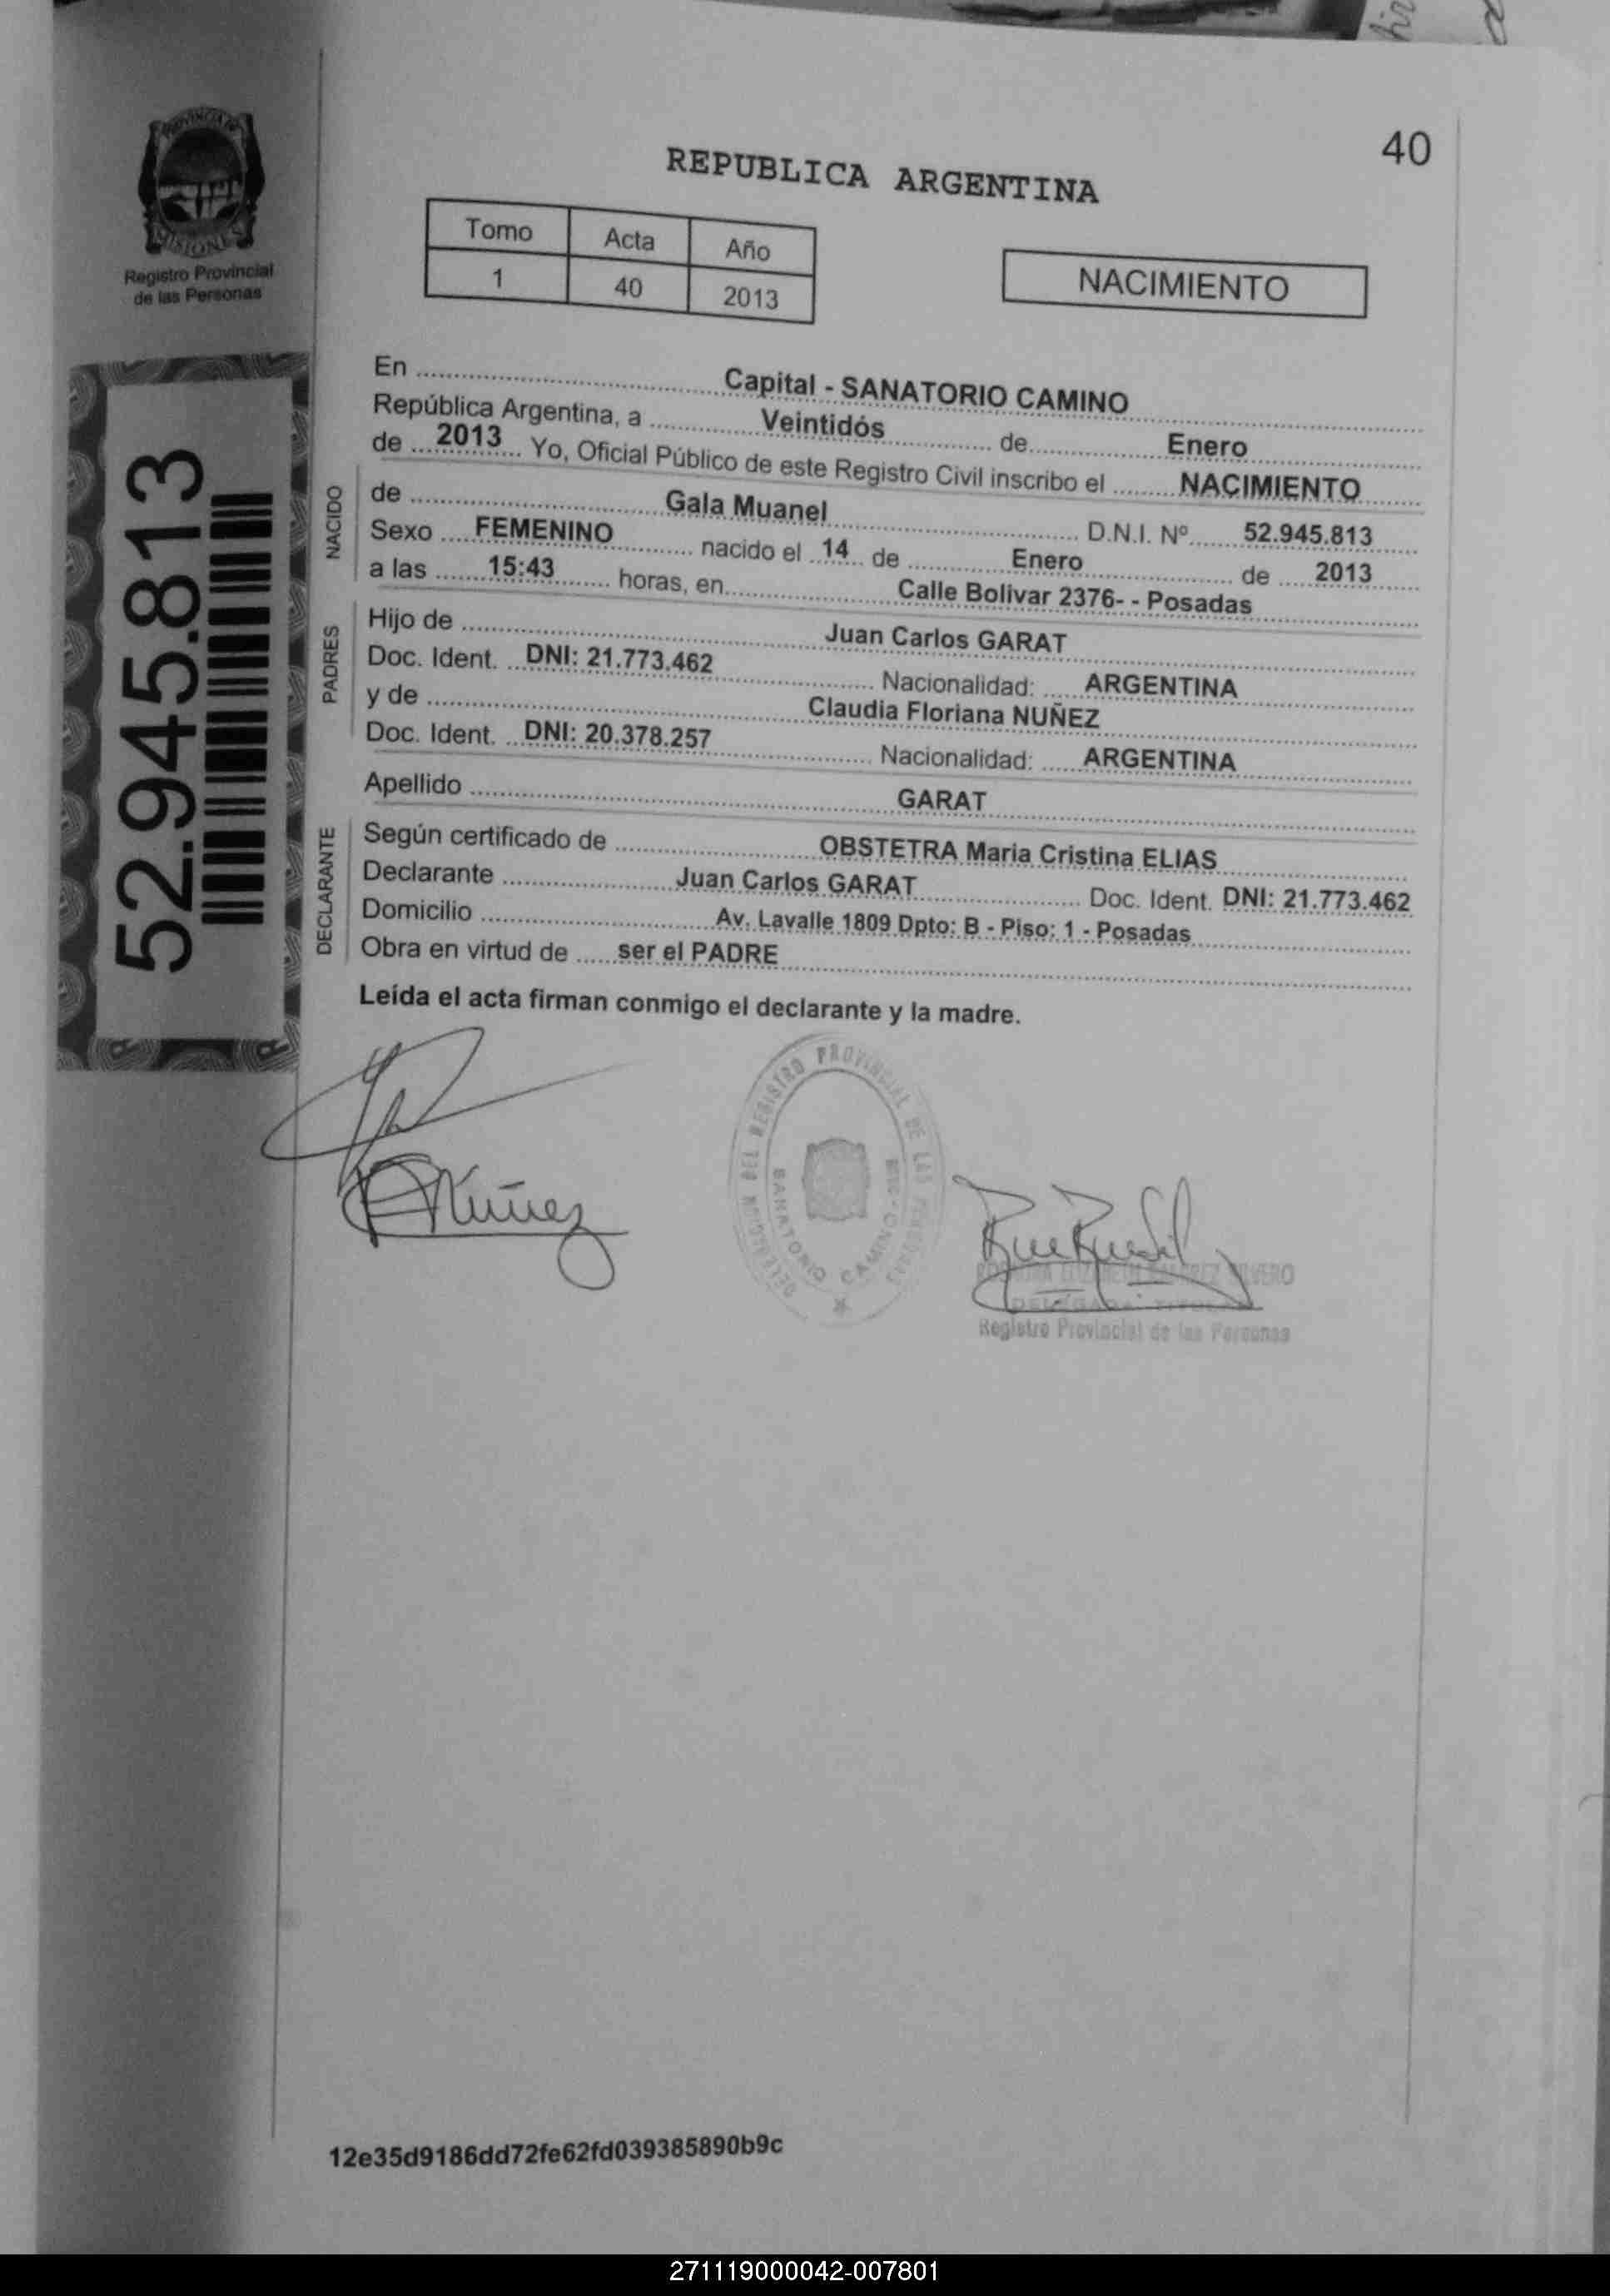 40
REPUBLICA ARGENTINA
PROVINCIA DE
MISIONES
Registro Provincial
de las Personas
Tomo Acta Año
1 40 2013
NACIMIENTO
52.945.813
En Capital - SANATORIO CAMINO
República Argentina, a Veintidós de Enero
de 2013 Yo, Oficial Público de este Registro Civil inscribo el NACIMIENTO
NACIDO
de Gala Muanel D.N.I. Nº 52.945.813
Sexo FEMENINO nacido el 14 de Enero de 2013
a las 15:43 horas, en Calle Bolivar 2376- - Posadas
PADRES
Hijo de Juan Carlos GARAT
Doc. Ident. DNI: 21.773.462 Nacionalidad: ARGENTINA
y de Claudia Floriana NUÑEZ
Doc. Ident. DNI: 20.378.257 Nacionalidad: ARGENTINA
Apellido GARAT
DECLARANTE
Según certificado de OBSTETRA Maria Cristina ELIAS
Declarante Juan Carlos GARAT Doc. Ident. DNI: 21.773.462
Domicilio Av. Lavalle 1809 Dpto: B - Piso: 1 - Posadas
Obra en virtud de ser el PADRE
Leída el acta firman conmigo el declarante y la madre.
Núñez
DELEGACION DEL REGISTRO PROVINCIAL DE LAS PERSONAS
SANATORIO CAMINO
Registro Provincial de las Personas
12e35d9186dd72fe62fd039385890b9c
271119000042-007801